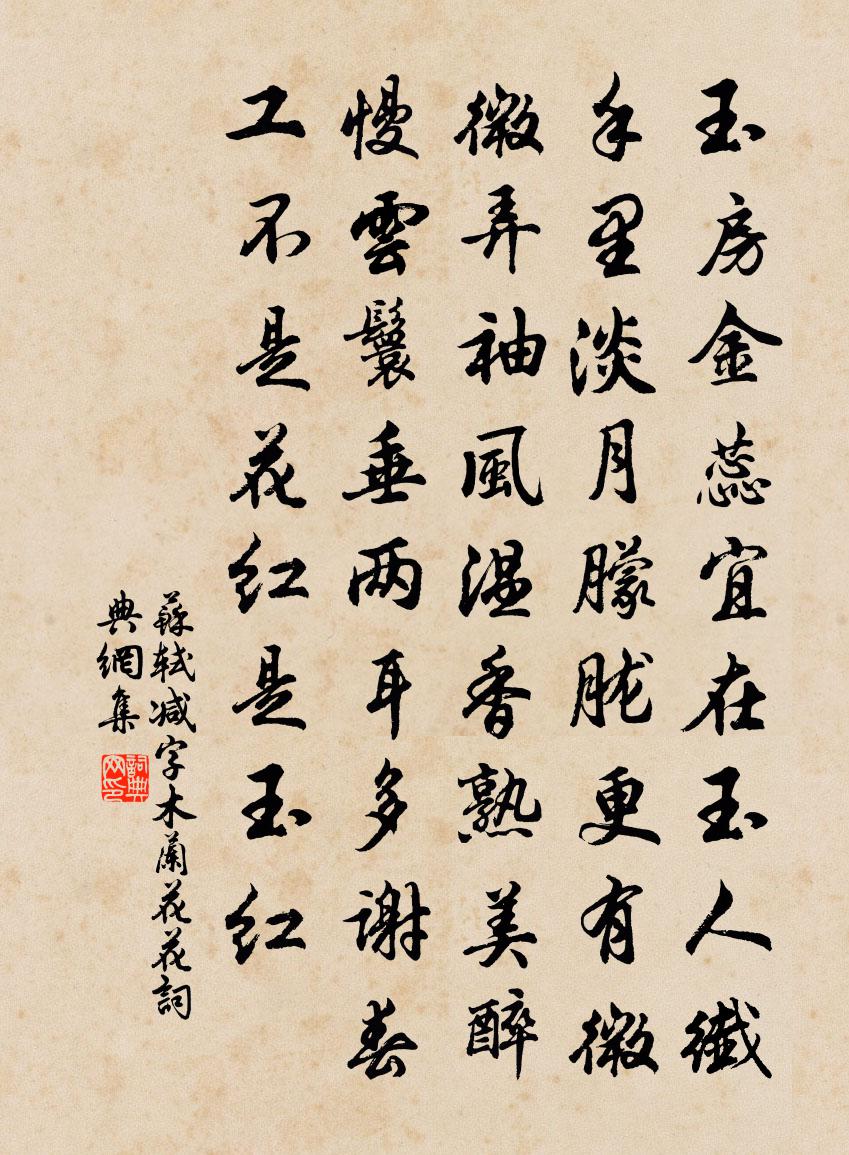 玉房金蕊宜在玉人纖
手里淡月朦朧更有微
微弄袖風溫香熟美醉
慢雲鬟垂两耳多謝春
工不是花红是玉红
蘇軾减字木蘭花花詞
典網集
詞典
网印